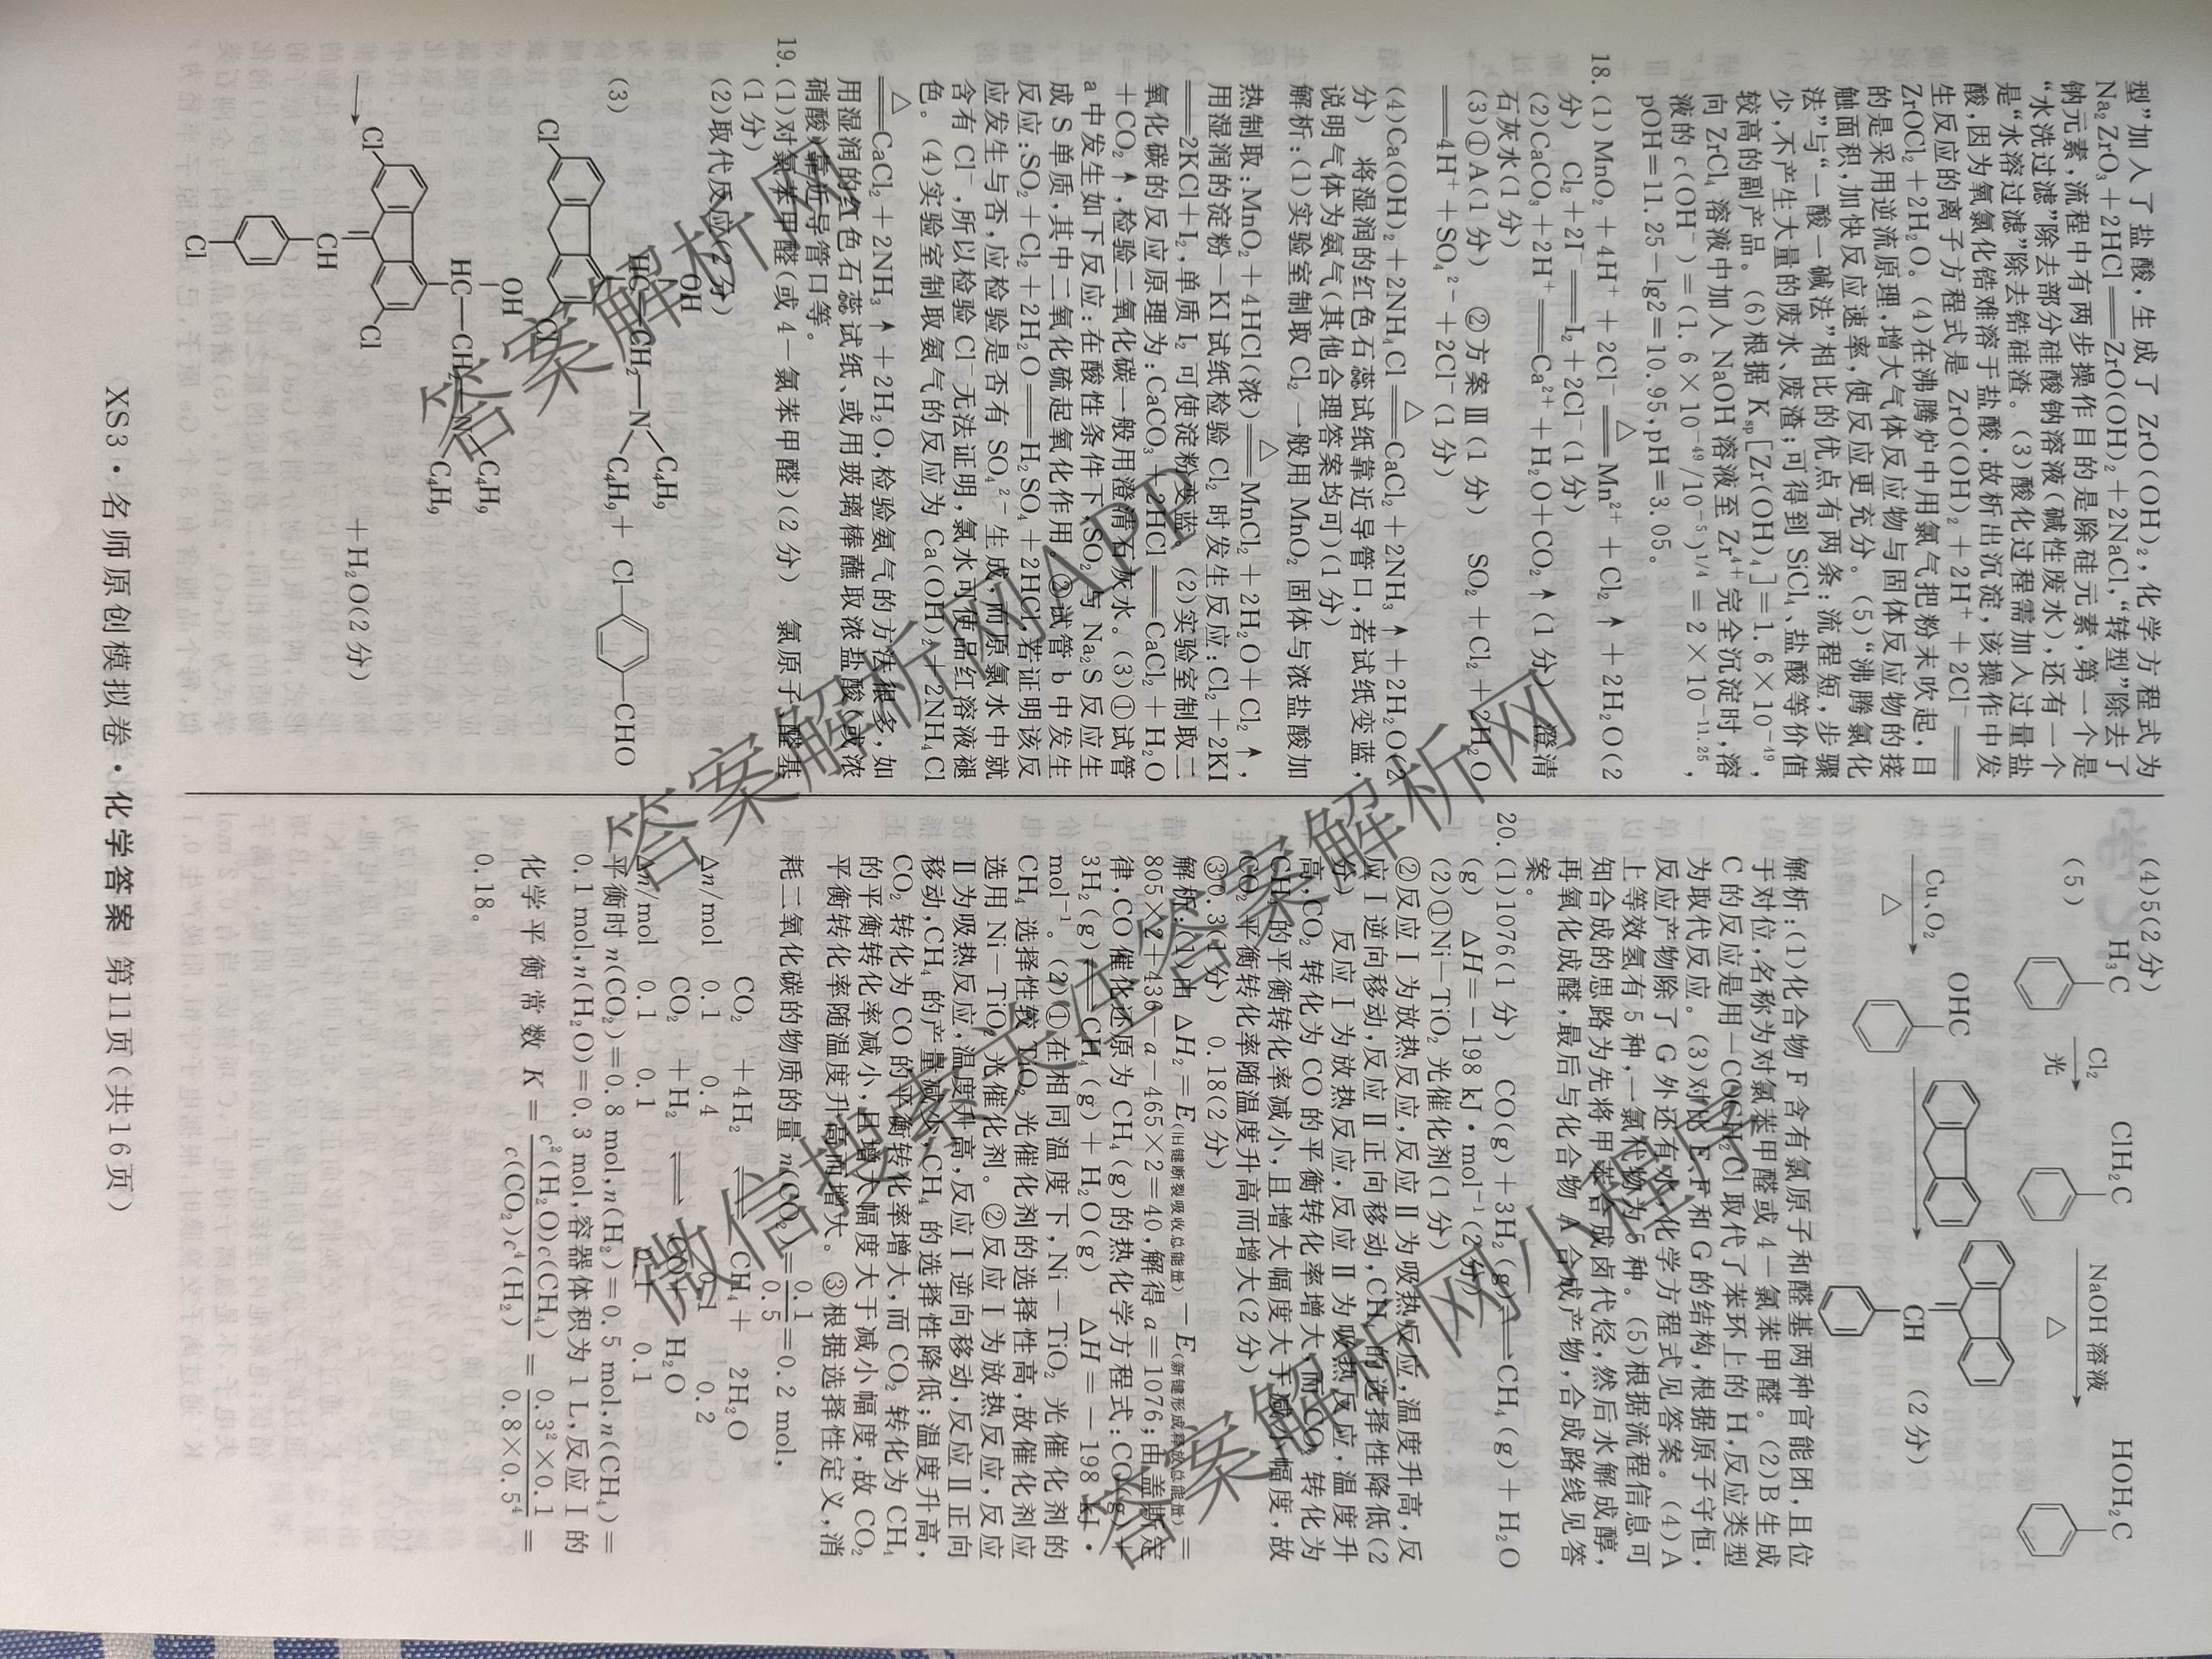 型”加入了盐酸,生成了 ZrO(OH)₂,化学方程式为
Na₂ZrO₃+2HCl══ZrO(OH)₂+2NaCl,“转型”除去了
钠元素,流程中有两步操作目的是除硅元素,第一个是
“水洗过滤”除去部分硅酸钠溶液(碱性废水),还有一个
是“水溶过滤”除去锆硅渣。(3)酸化过程需加入过量盐
酸,因为氧氯化锆难溶于盐酸,故析出沉淀,该操作中发
生反应的离子方程式是 ZrO(OH)₂+2H⁺+2Cl⁻══
ZrOCl₂+2H₂O。(4)在沸腾炉中用氯气把粉末吹起,目
的是采用逆流原理,增大气体反应物与固体反应物的接
触面积,加快反应速率,使反应更充分。(5)“沸腾氯化
法”与“一酸一碱法”相比的优点有两条:流程短,步骤
少,不产生大量的废水、废渣;可得到 SiCl₄、盐酸等价值
较高的副产品。(6)根据 Kₛₚ[Zr(OH)₄]=1.6×10⁻⁴⁹,
向 ZrCl₄ 溶液中加入 NaOH 溶液至 Zr⁴⁺ 完全沉淀时,溶
液的 c(OH⁻)=(1.6×10⁻⁴⁹/10⁻⁵)^1/4=2×10^-11.25,
pOH=11.25-lg2=10.95,pH=3.05。
18.(1)MnO₂+4H⁺+2Cl⁻══△Mn²⁺+Cl₂↑+2H₂O(2
分) Cl₂+2I⁻══I₂+2Cl⁻(1分)
(2)CaCO₃+2H⁺══Ca²⁺+H₂O+CO₂↑(1分) 澄清
石灰水(1分)
(3)①A(1分) ②方案Ⅲ(1分) SO₂+Cl₂+2H₂O
══4H⁺+SO₄²⁻+2Cl⁻(1分)
(4)Ca(OH)₂+2NH₄Cl══△CaCl₂+2NH₃↑+2H₂O(2
分) 将湿润的红色石蕊试纸靠近导管口,若试纸变蓝,
说明气体为氨气(其他合理答案均可)(1分)
解析:(1)实验室制取 Cl₂ 一般用 MnO₂ 固体与浓盐酸加
热制取:MnO₂+4HCl(浓)══△MnCl₂+2H₂O+Cl₂↑,
用湿润的淀粉-KI试纸检验 Cl₂ 时发生反应:Cl₂+2KI
══2KCl+I₂,单质 I₂ 可使淀粉变蓝。(2)实验室制取二
氧化碳的反应原理为:CaCO₃+2HCl══CaCl₂+H₂O
+CO₂↑,检验二氧化碳一般用澄清石灰水。(3)①试管
a 中发生如下反应:在酸性条件下,SO₂ 与 Na₂S 反应生
成 S 单质,其中二氧化硫起氧化作用。②试管 b 中发生
反应:SO₂+Cl₂+2H₂O══H₂SO₄+2HCl,若证明该反
应发生与否,应检验是否有 SO₄²⁻ 生成,而原氯水中就
含有 Cl⁻,所以检验 Cl⁻无法证明,氯水可使品红溶液褪
色。(4)实验室制取氨气的反应为 Ca(OH)₂+2NH₄Cl
══△CaCl₂+2NH₃↑+2H₂O,检验氨气的方法很多,如
用湿润的红色石蕊试纸、或用玻璃棒蘸取浓盐酸(或浓
硝酸)靠近导管口等。
19.(1)对氯苯甲醛(或 4-氯苯甲醛)(2分) 氯原子、醛基
(1分)
(2)取代反应(2分)
(3)
OH
HC—CH₂—N
C₄H₉
C₄H₉
Cl
Cl
+ Cl
—CHO
→
OH
HC—CH₂—N
C₄H₉
C₄H₉
Cl
Cl
CH
Cl
+H₂O(2分)
(4)5(2分)
(5)
H₃C
Cl₂
光
ClH₂C
NaOH溶液
△
HOH₂C
Cu、O₂
△
OHC
CH
(2分)
解析:(1)化合物 F 含有氯原子和醛基两种官能团,且位
于对位,名称为对氯苯甲醛或 4-氯苯甲醛。(2)B 生成
C 的反应是用-COCH₂Cl 取代了苯环上的 H,反应类型
为取代反应。(3)对比 E、F 和 G 的结构,根据原子守恒,
反应产物除了 G 外还有水,化学方程式见答案。(4)A
上等效氢有 5 种,一氯代物为 5 种。(5)根据流程信息可
知合成的思路为先将甲苯合成卤代烃,然后水解成醇,
再氧化成醛,最后与化合物 A 合成产物,合成路线见答
案。
20.(1)1076(1分) CO(g)+3H₂(g)⇌CH₄(g)+H₂O
(g) ΔH=-198 kJ·mol⁻¹(2分)
(2)①Ni-TiO₂ 光催化剂(1分)
②反应Ⅰ为放热反应,反应Ⅱ为吸热反应,温度升高,反
应Ⅰ逆向移动,反应Ⅱ正向移动,CH₄ 的选择性降低(2
分) 反应Ⅰ为放热反应,反应Ⅱ为吸热反应,温度升
高,CO₂ 转化为 CO 的平衡转化率增大,而 CO₂ 转化为
CH₄ 的平衡转化率减小,且增大幅度大于减小幅度,故
CO₂ 平衡转化率随温度升高而增大(2分)
③0.3(1分) 0.18(2分)
解析:(1)由 ΔH₂=E(旧键断裂吸收总能量)-E(新键形成释放总能量)=
805×2+436-a-465×2=40,解得 a=1076;由盖斯定
律,CO 催化还原为 CH₄(g)的热化学方程式:CO(g)+
3H₂(g)⇌CH₄(g)+H₂O(g) ΔH=-198 kJ·
mol⁻¹。(2)①在相同温度下,Ni-TiO₂ 光催化剂的
CH₄ 选择性较 TiO₂ 光催化剂的选择性高,故催化剂应
选用 Ni-TiO₂ 光催化剂。②反应Ⅰ为放热反应,反应
Ⅱ为吸热反应,温度升高,反应Ⅰ逆向移动,反应Ⅱ正向
移动,CH₄ 的产量减少,CH₄ 的选择性降低;温度升高,
CO₂ 转化为 CO 的平衡转化率增大,而 CO₂ 转化为 CH₄
的平衡转化率减小,且增大幅度大于减小幅度,故 CO₂
平衡转化率随温度升高而增大。③根据选择性定义,消
耗二氧化碳的物质的量 n(CO₂)=0.1/0.5=0.2 mol,
CO₂ +4H₂ ⇌ CH₄+ 2H₂O
Δn/mol 0.1 0.4 0.1 0.2
CO₂ +H₂ ⇌ CO+ H₂O
Δn/mol 0.1 0.1 0.1 0.1
平衡时 n(CO₂)=0.8 mol,n(H₂)=0.5 mol,n(CH₄)=
0.1 mol,n(H₂O)=0.3 mol,容器体积为 1 L,反应Ⅰ的
化学平衡常数 K=c²(H₂O)c(CH₄)/c(CO₂)c⁴(H₂)=0.3²×0.1/0.8×0.5⁴=
0.18。
XS3·名师原创模拟卷·化学答案 第11页(共16页)
答案解析网
答案解析网APP
答案解析网
答案解析网